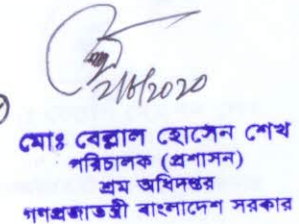 2/6/2020
মোঃ বেল্লাল হোসেন শেখ
পরিচালক (প্রশাসন)
শ্রম অধিদপ্তর
গণপ্রজাতন্ত্রী বাংলাদেশ সরকার